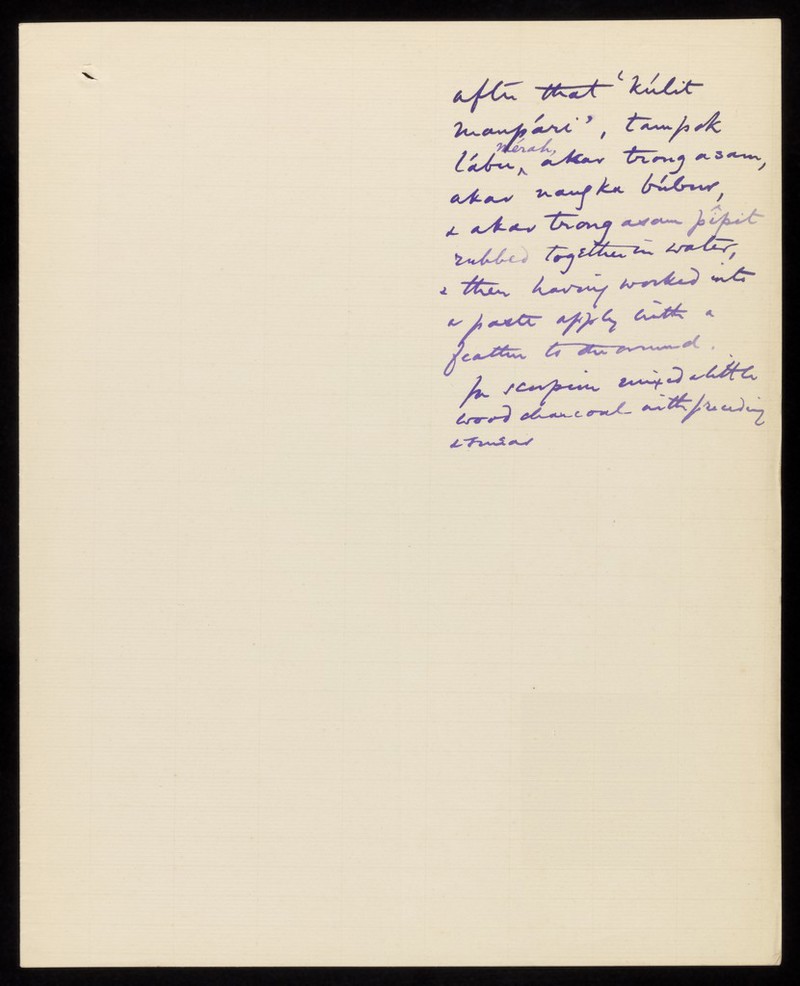 after that 'kúlit
manpári', tampok
lábu mérah, akar trong asam,
akar nangka búbur,
& akar trong asam pîpit
rubbed together in water,
& then having worked into
a paste apply with a
feather to the wound.
for scorpion mixed a little
wood charcoal with preceding
& smear